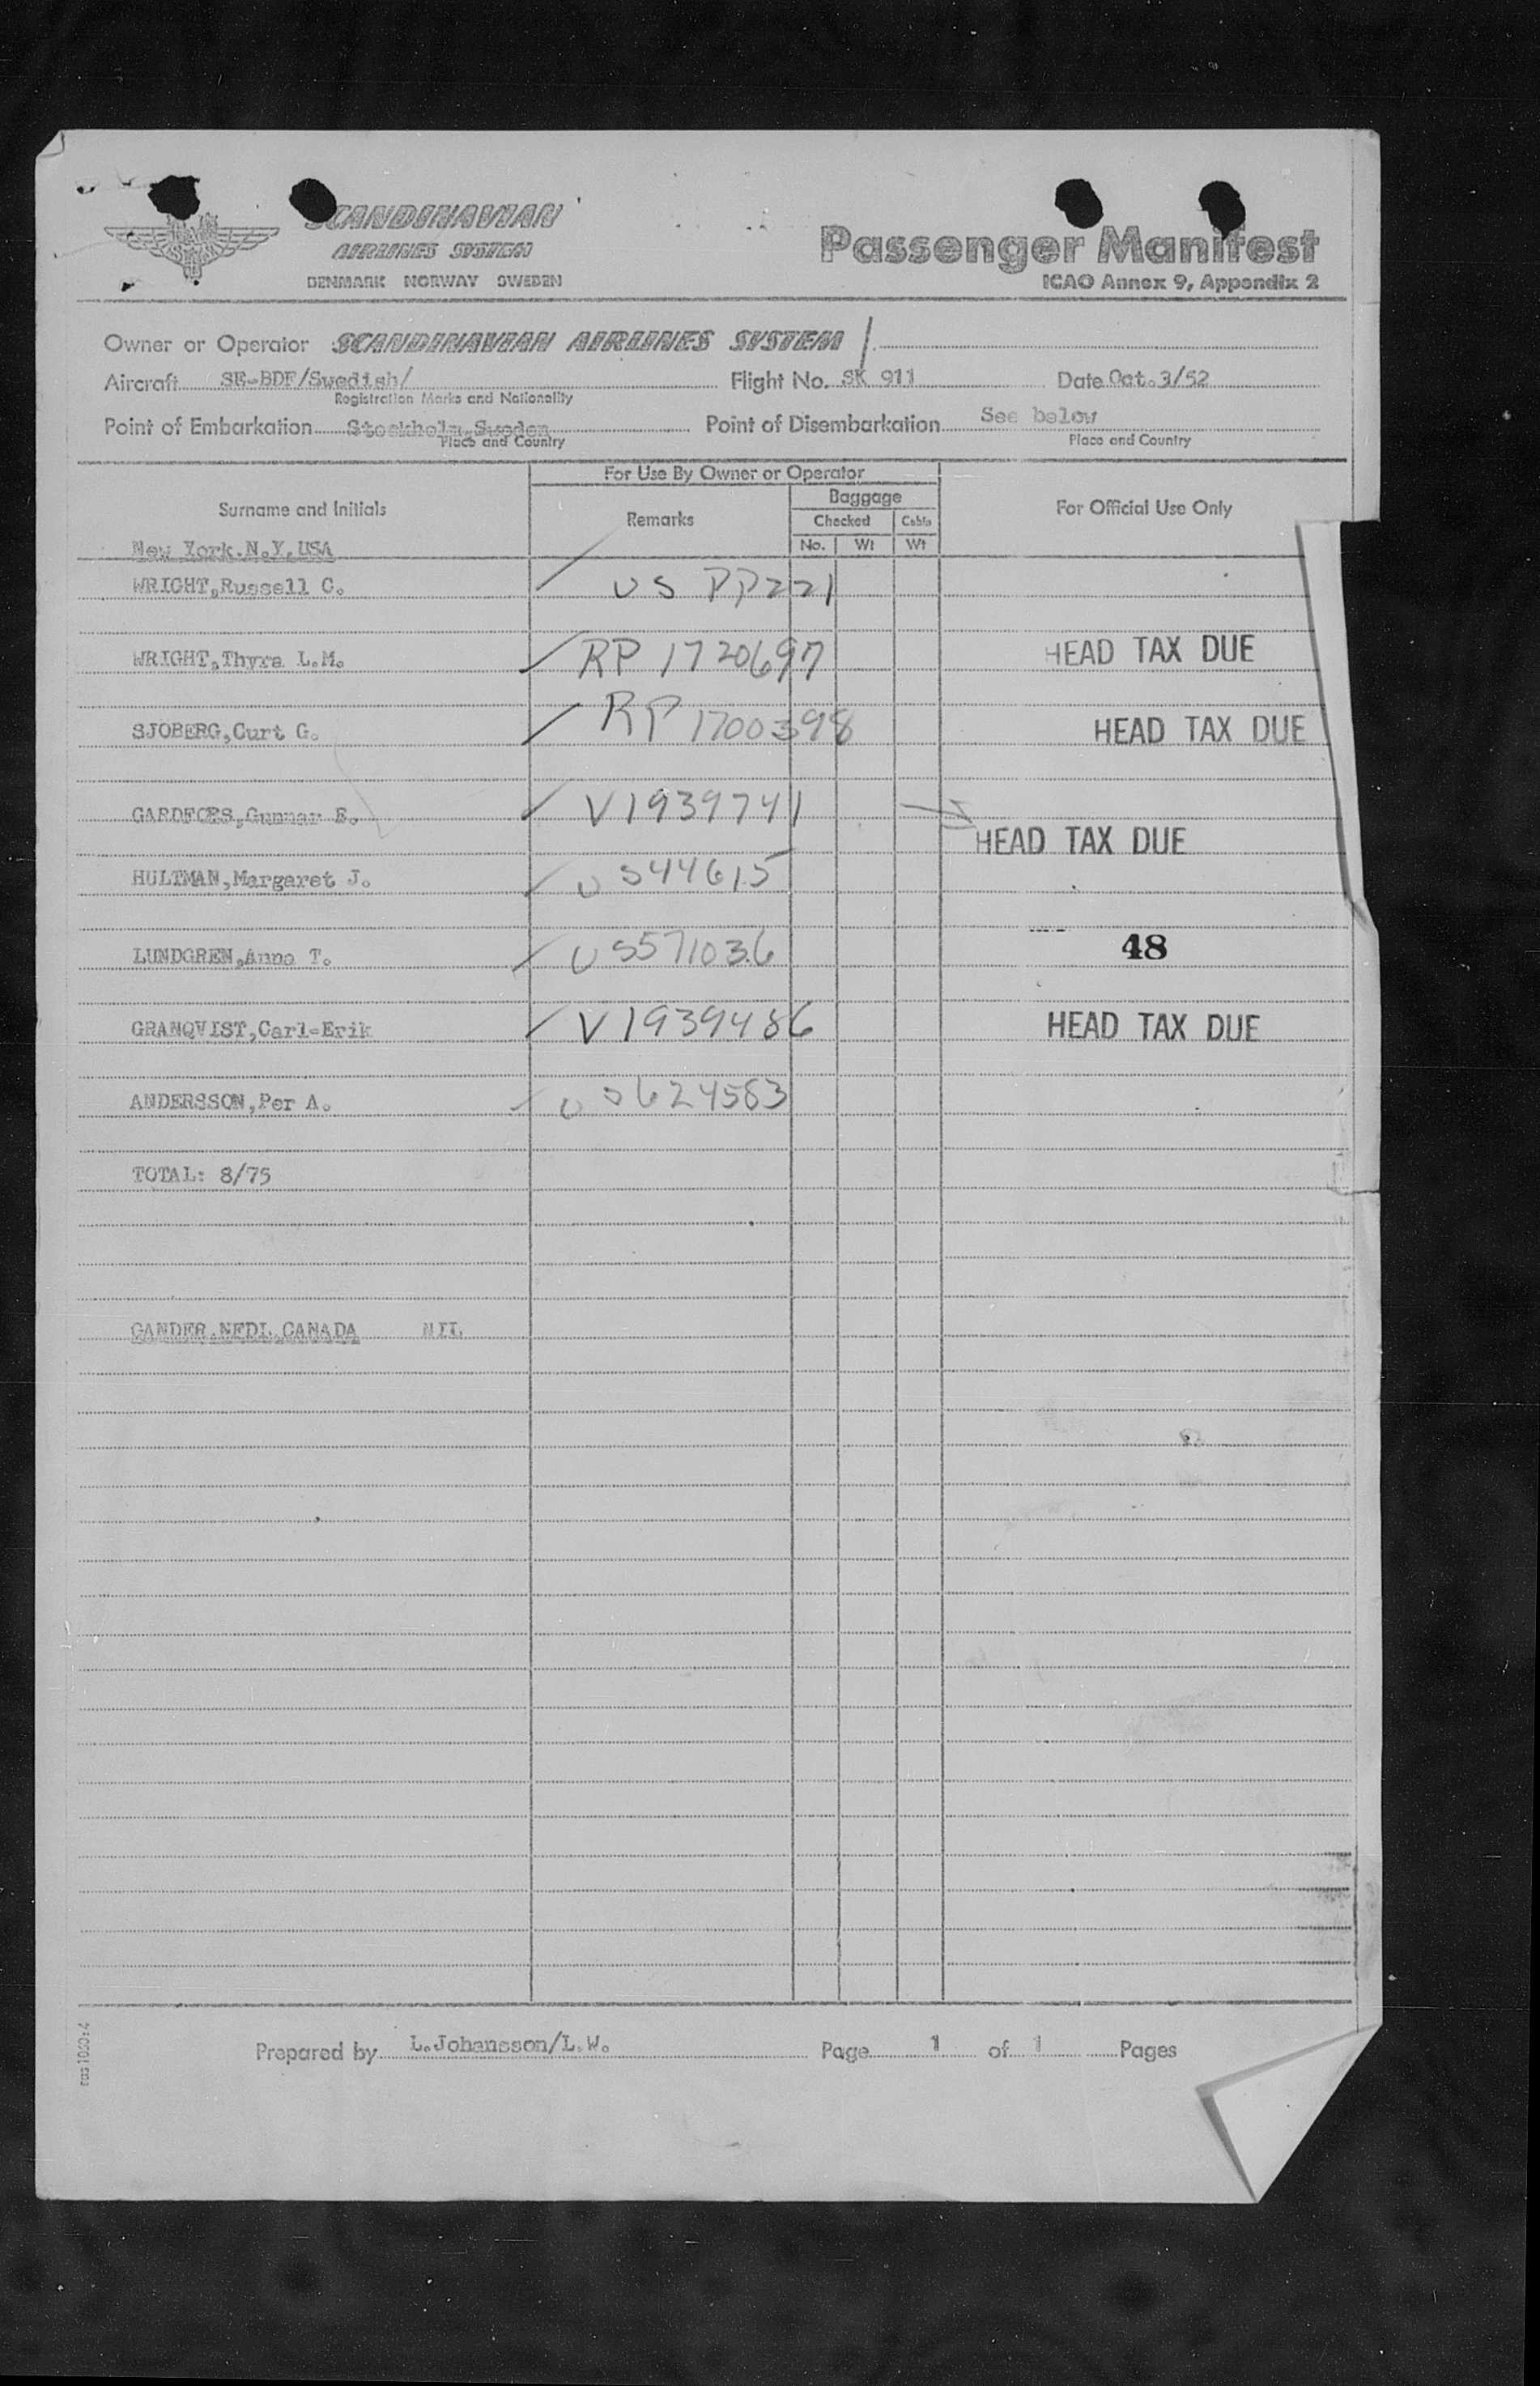 SCANDINAVIAN
AIRLINES SYSTEM
DENMARK NORWAY SWEDEN
Passenger Manifest
ICAO Annex 9, Appendix 2
Owner or Operator SCANDINAVIAN AIRLINES SYSTEM
Aircraft SE-BDF/Swedish/ Flight No. SK 911 Date Oct.3/52
Registration Marks and Nationality
Point of Embarkation Stockholm,Sweden Point of Disembarkation See below
Place and Country Place and Country
For Use By Owner or Operator
Surname and Initials Remarks Baggage For Official Use Only
Checked Cabin
No. Wt Wt
New York.N.Y.USA
WRIGHT,Russell C. US PP221
WRIGHT,Thyra L.M. RP 1720697 HEAD TAX DUE
SJOBERG,Curt G. RP 1700398 HEAD TAX DUE
GARDFORS,Gunnar E. V1939741
HEAD TAX DUE
HULTMAN,Margaret J. US44615
LUNDGREN,Anna T. US571036 48
GRANQVIST,Carl-Erik V1939486 HEAD TAX DUE
ANDERSSON,Per A. US624583
TOTAL: 8/75
GANDER.NFDL.CANADA NIL
Prepared by L.Johansson/L.W. Page 1 of 1 Pages